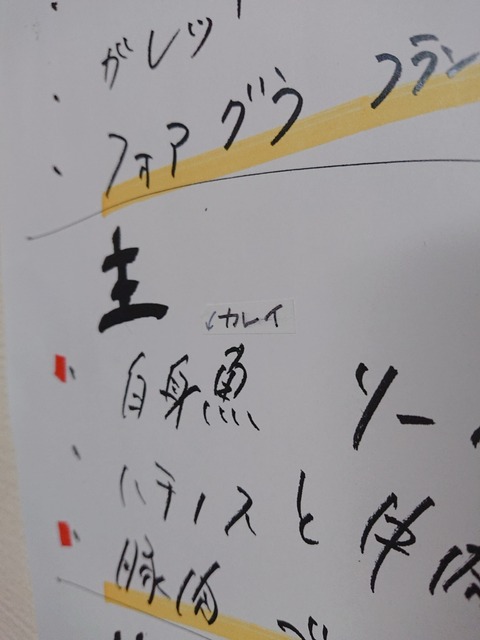 ガレッ
フォア グラ フラン
主
↙カレイ
白身魚 ソー
ハチノスと
豚肉